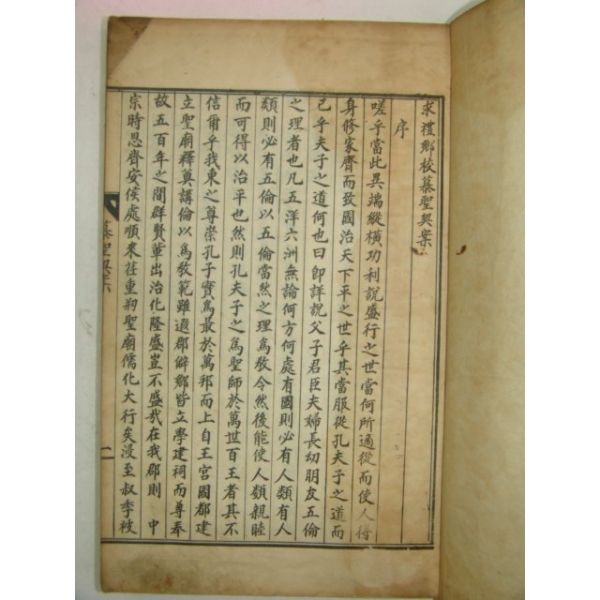 求禮鄉校慕聖契案
序
嗟乎當此異端縱橫功利說盛行之世當何所適從而使人得
身修家齊而致國治天下平之世乎其當服從孔夫子之道而
已乎夫子之道何也曰卽詳說父子君臣夫婦長幼朋友五倫
之理者也凡五洋六洲無論何方何處有國則必有人類有人
類則必有五倫以五倫當然之理爲敎令然後能使人類親睦
而可得以治平也然則孔夫子之爲聖師於萬世百王者其不
信爾乎我東之尊崇孔子實爲最於萬邦而上自王宮國都建
立聖廟釋奠講倫以爲敎範雖遐郡僻鄉皆立學建祠而尊奉
故五百年之間群賢輩出治化隆盛豈不盛哉在我郡則 中
宗時思齊安侯處順來莅重刱聖廟儒化大行矣浸至叔季被
慕聖契案
一